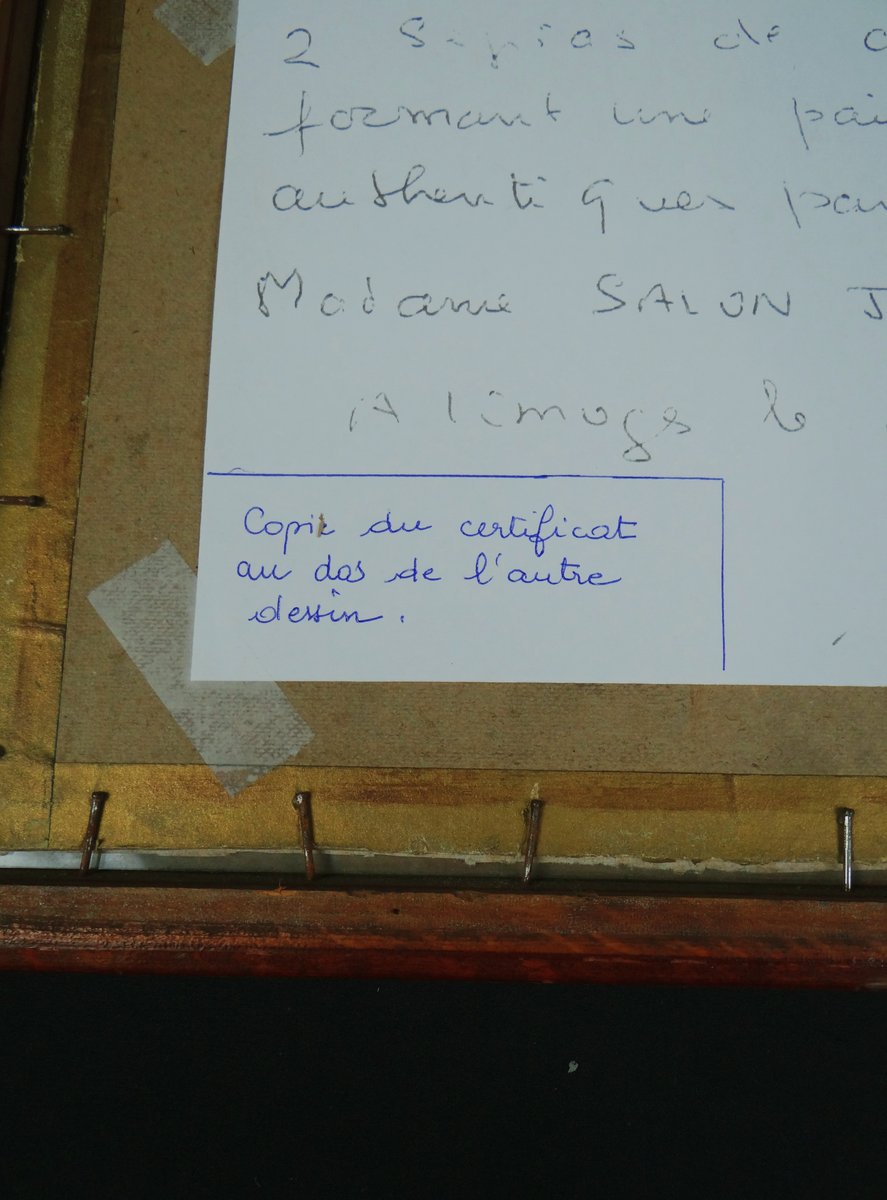 2 Sépias de
formant une pai
authentiques par
Madame SALON J
A limoges le
Copie du certificat
au dos de l'autre
dessin.